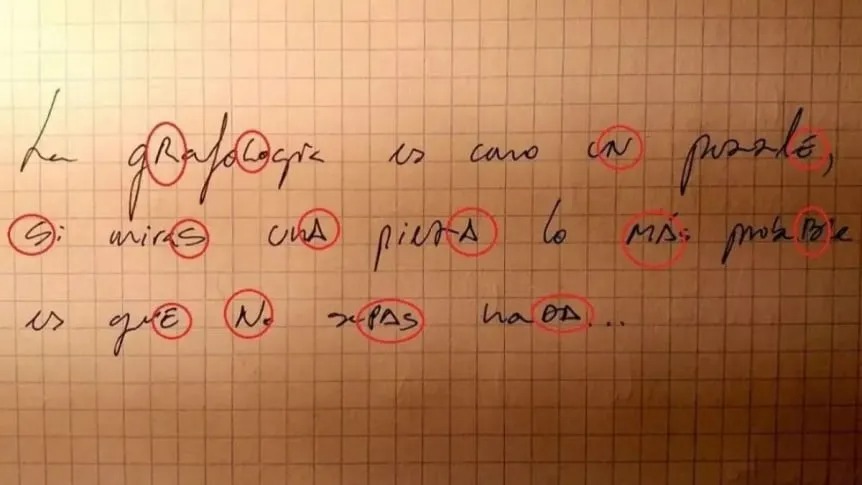 La gRafoLogía es como uN puzzlE,
Si miraS unA piezA lo MÁs probaBle
es quE No sePAS naDA...